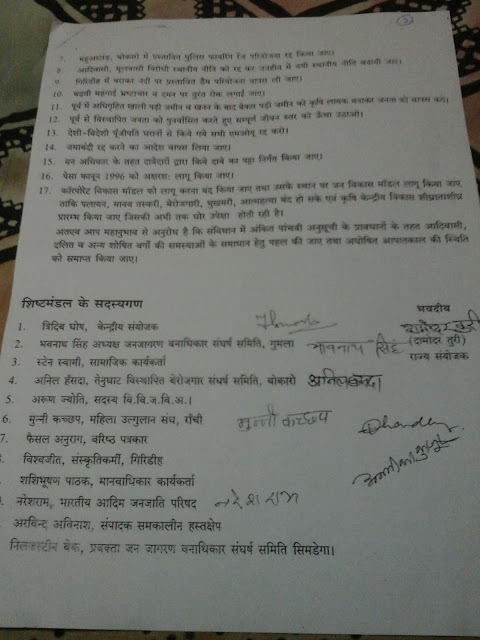 2
7. महुआडांड, बोकारो में प्रस्तावित पुलिस फायरिंग रेंज परियोजना रद्द किया जाए।
8. आदिवासी, मूलवासी विरोधी स्थानीय नीति को रद्द कर जनहित में नयी स्थानीय नीति बनायी जाए।
9. गिरिडीह में बराकर नदी पर प्रस्तावित डैम परियोजना वापस ली जाए।
10. बढ़ती महंगाई भ्रष्टाचार व दमन पर तुरंत रोक लगाई जाए।
11. पूर्व में अधिगृहित खाली पड़ी जमीन व खनन के बाद बेकार पड़ी जमीन को कृषि लायक बनाकर जनता को वापस करो।
12. पूर्व में विस्थापित जनता को पुनर्वासित करते हुए सम्पूर्ण जीवन स्तर को ऊँचा उठाओ।
13. देशी-विदेशी पूँजीपति घरानों से किये गये सभी एमओयू रद्द करो।
14. जमाबंदी रद्द करने का आदेश वापस लिया जाए।
15. वन अधिकार के तहत दावेदारों द्वारा किये दावे का पट्टा निर्गत किया जाए।
16. पेसा कानून 1996 को अक्षरशः लागू किया जाए।
17. कॉरपोरेट विकास मॉडल को लागू करना बंद किया जाए तथा उसके स्थान पर जन विकास मॉडल लागू किया जाए,
ताकि पलायन, मानव तस्करी, बेरोजगारी, भुखमरी, आत्महत्या बंद हो सके एवं कृषि केन्द्रीय विकास शीघ्रातीशीघ्र
प्रारम्भ किया जाए जिसकी अभी तक घोर उपेक्षा होती रही है।
अतएव आप महानुभाव से अनुरोध है कि संविधान में अंकित पांचवी अनुसूची के प्रावधानों के तहत आदिवासी,
दलित व अन्य शोषित वर्गों की समस्याओं के समाधान हेतु पहल की जाए तथा अघोषित आपातकाल की स्थिति
को समाप्त किया जाए।
शिष्टमंडल के सदस्यगण
भवदीय
1. त्रिदिब घोष, केन्द्रीय संयोजक
दामोदर तुरी
2. भवनाथ सिंह अध्यक्ष जनजागरण वनाधिकार संघर्ष समिति, गुमला भवनाथ सिंह (दामोदर तुरी)
3. स्टेन स्वामी, सामाजिक कार्यकर्ता
राज्य संयोजक
4. अनिल हँसदा, तेनुघाट विस्थापित बेरोजगार संघर्ष समिति, बोकारो
5. अरुण ज्योति, सदस्य वि.वि.ज.वि.अ.।
6. मुन्नी कच्छप, महिला उलगुलान संघ, राँची मुन्नी कच्छप
7. फैसल अनुराग, वरिष्ठ पत्रकार
विश्वजीत, संस्कृतिकर्मी, गिरिडीह
शशिभूषण पाठक, मानवाधिकार कार्यकर्ता
नरेशराम, भारतीय आदिम जनजाति परिषद नरेश राम
अरविन्द अविनाश, संपादक समकालीन हस्तक्षेप
निलजस्टीन बेक, प्रवक्ता जन जागरण वनाधिकार संघर्ष समिति सिमडेगा।